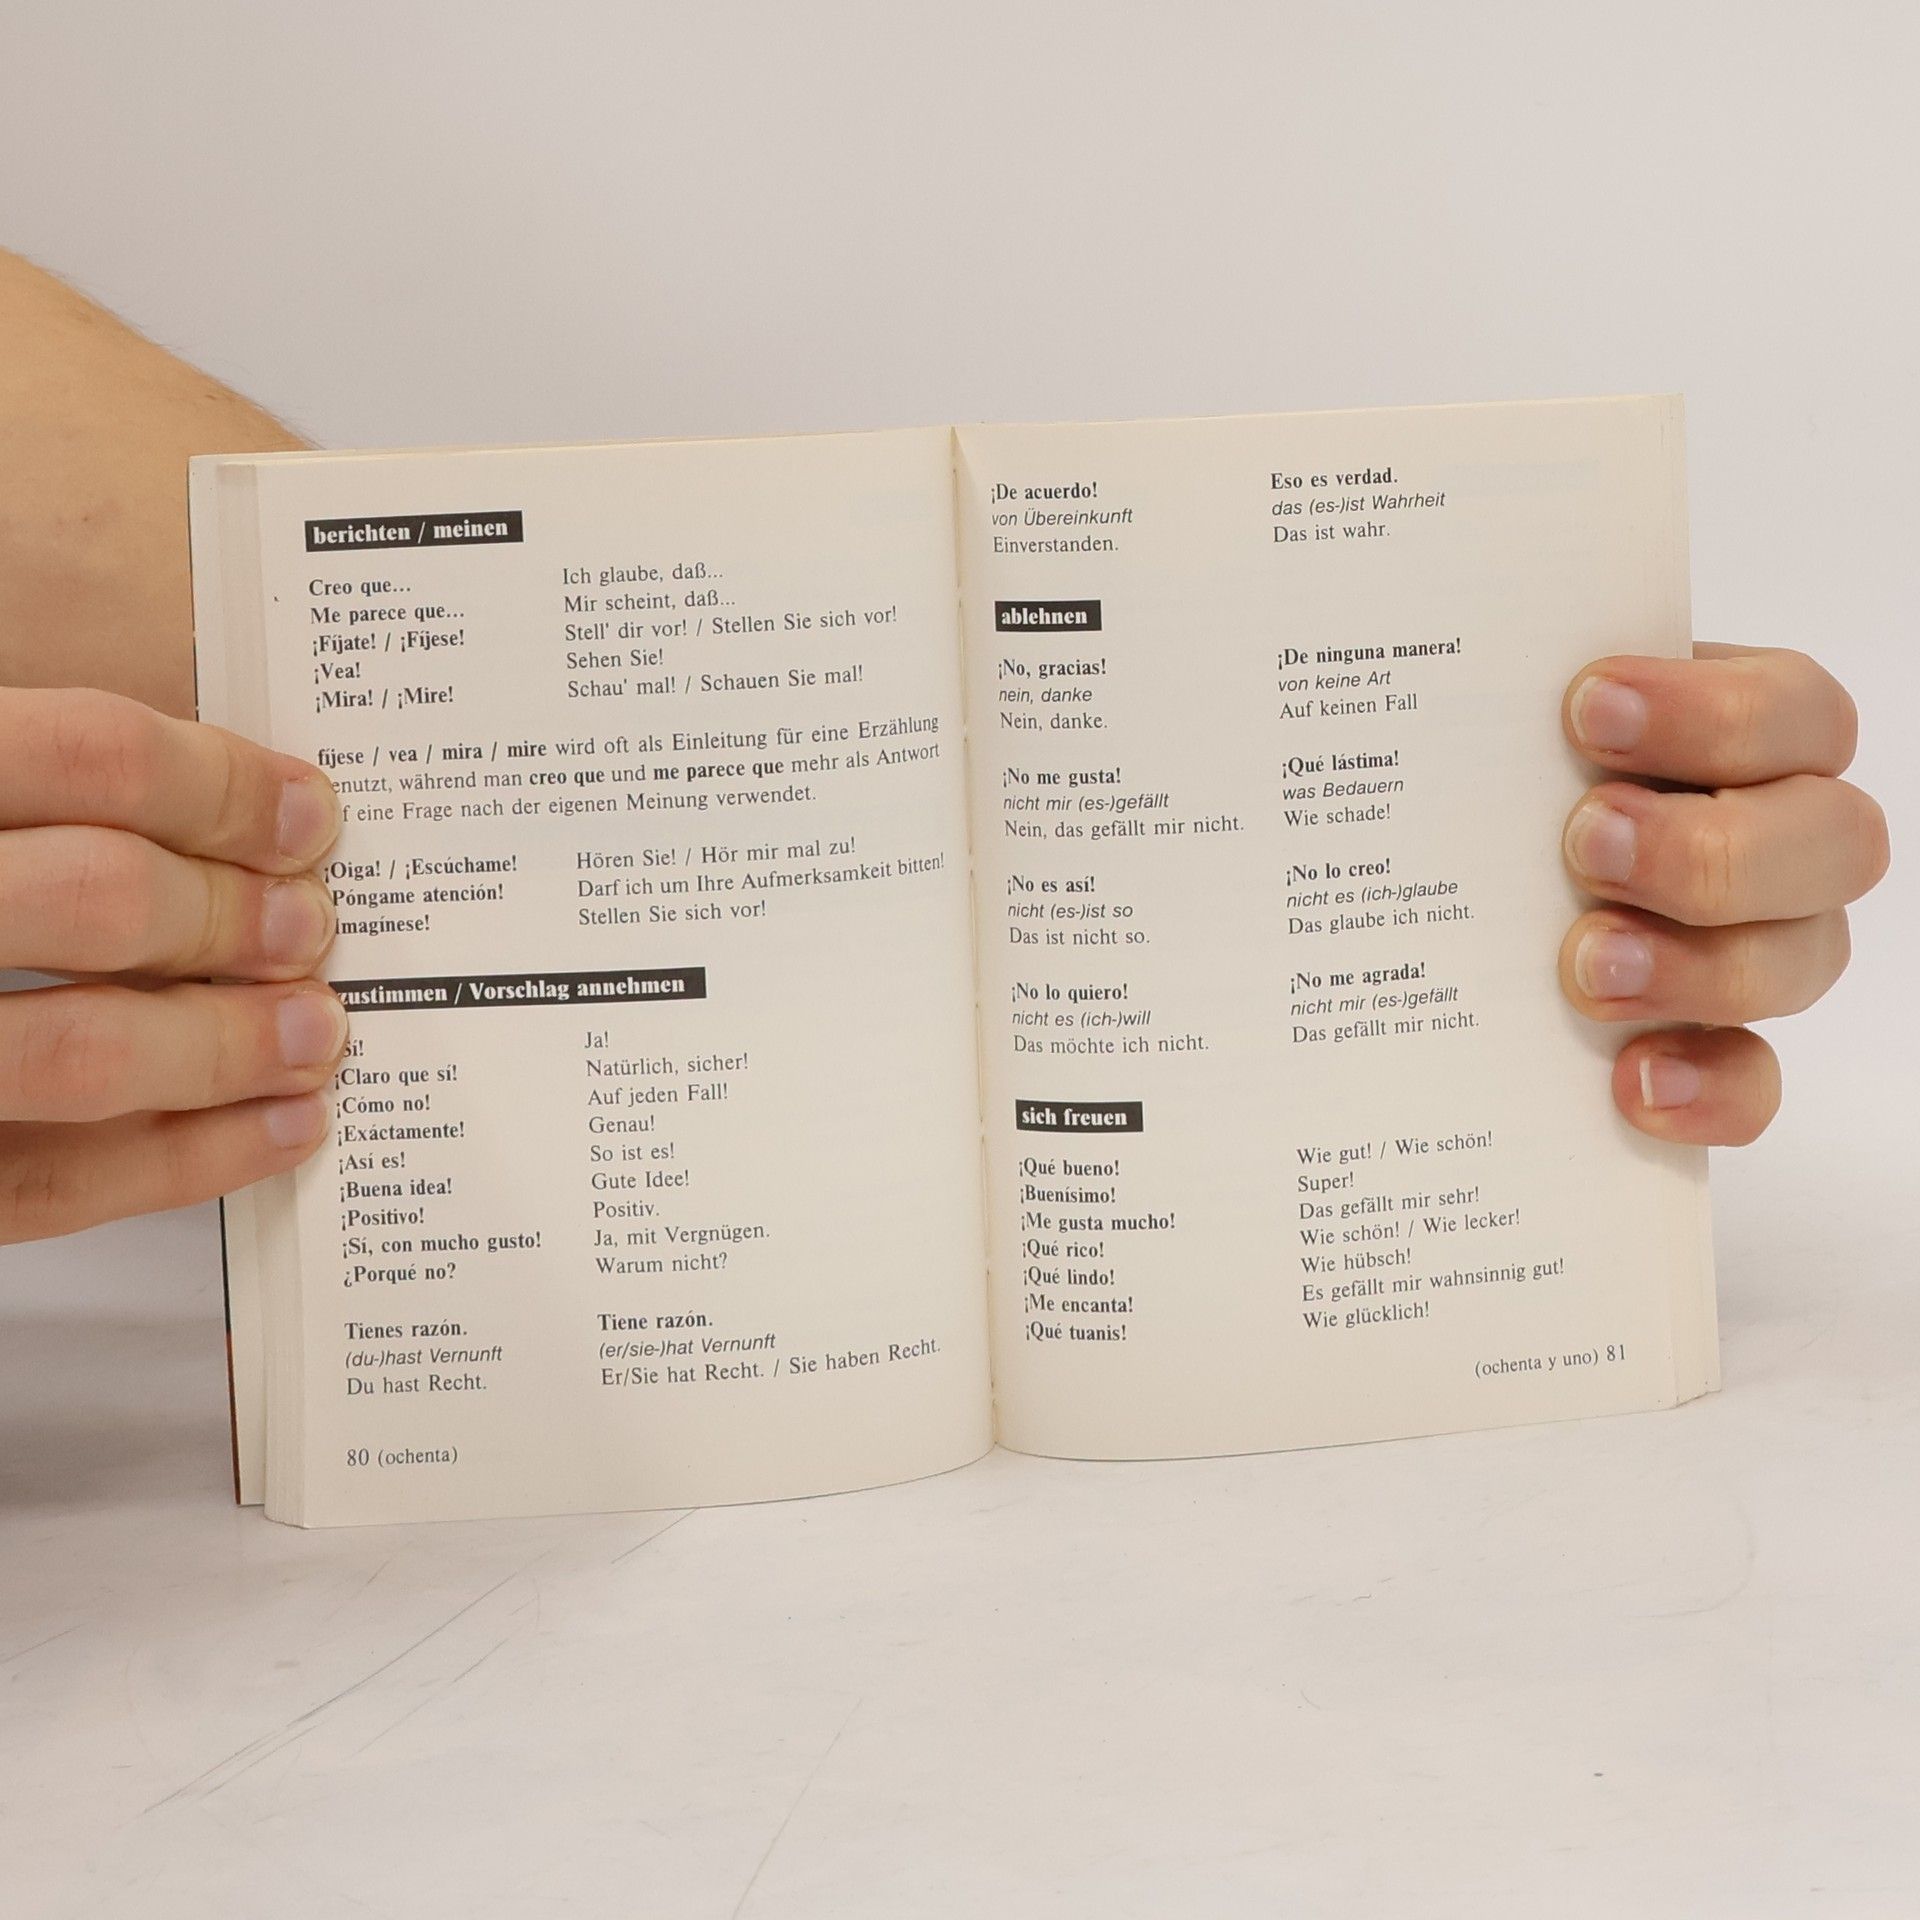 berichten / meinen
Creo que... Ich glaube, daß...
Me parece que... Mir scheint, daß...
¡Fíjate! / ¡Fíjese! Stell' dir vor! / Stellen Sie sich vor!
¡Vea! Sehen Sie!
¡Mira! / ¡Mire! Schau' mal! / Schauen Sie mal!
fíjese / vea / mira / mire wird oft als Einleitung für eine Erzählung
enutzt, während man creo que und me parece que mehr als Antwort
f eine Frage nach der eigenen Meinung verwendet.
¡Oiga! / ¡Escúchame! Hören Sie! / Hör mir mal zu!
Póngame atención! Darf ich um Ihre Aufmerksamkeit bitten!
Imagínese! Stellen Sie sich vor!
zustimmen / Vorschlag annehmen
Sí! Ja!
¡Claro que sí! Natürlich, sicher!
¡Cómo no! Auf jeden Fall!
¡Exáctamente! Genau!
¡Así es! So ist es!
¡Buena idea! Gute Idee!
¡Positivo! Positiv.
¡Sí, con mucho gusto! Ja, mit Vergnügen.
¿Porqué no? Warum nicht?
Tienes razón. Tiene razón.
(du-)hast Vernunft (er/sie-)hat Vernunft
Du hast Recht. Er/Sie hat Recht. / Sie haben Recht.
80 (ochenta)
¡De acuerdo! Eso es verdad.
von Übereinkunft das (es-)ist Wahrheit
Einverstanden. Das ist wahr.
ablehnen
¡No, gracias! ¡De ninguna manera!
nein, danke von keine Art
Nein, danke. Auf keinen Fall
¡No me gusta! ¡Qué lástima!
nicht mir (es-)gefällt was Bedauern
Nein, das gefällt mir nicht. Wie schade!
¡No es así! ¡No lo creo!
nicht (es-)ist so nicht es (ich-)glaube
Das ist nicht so. Das glaube ich nicht.
¡No lo quiero! ¡No me agrada!
nicht es (ich-)will nicht mir (es-)gefällt
Das möchte ich nicht. Das gefällt mir nicht.
sich freuen
¡Qué bueno! Wie gut! / Wie schön!
¡Buenísimo! Super!
¡Me gusta mucho! Das gefällt mir sehr!
¡Qué rico! Wie schön! / Wie lecker!
¡Qué lindo! Wie hübsch!
¡Me encanta! Es gefällt mir wahnsinnig gut!
¡Qué tuanis! Wie glücklich!
(ochenta y uno) 81